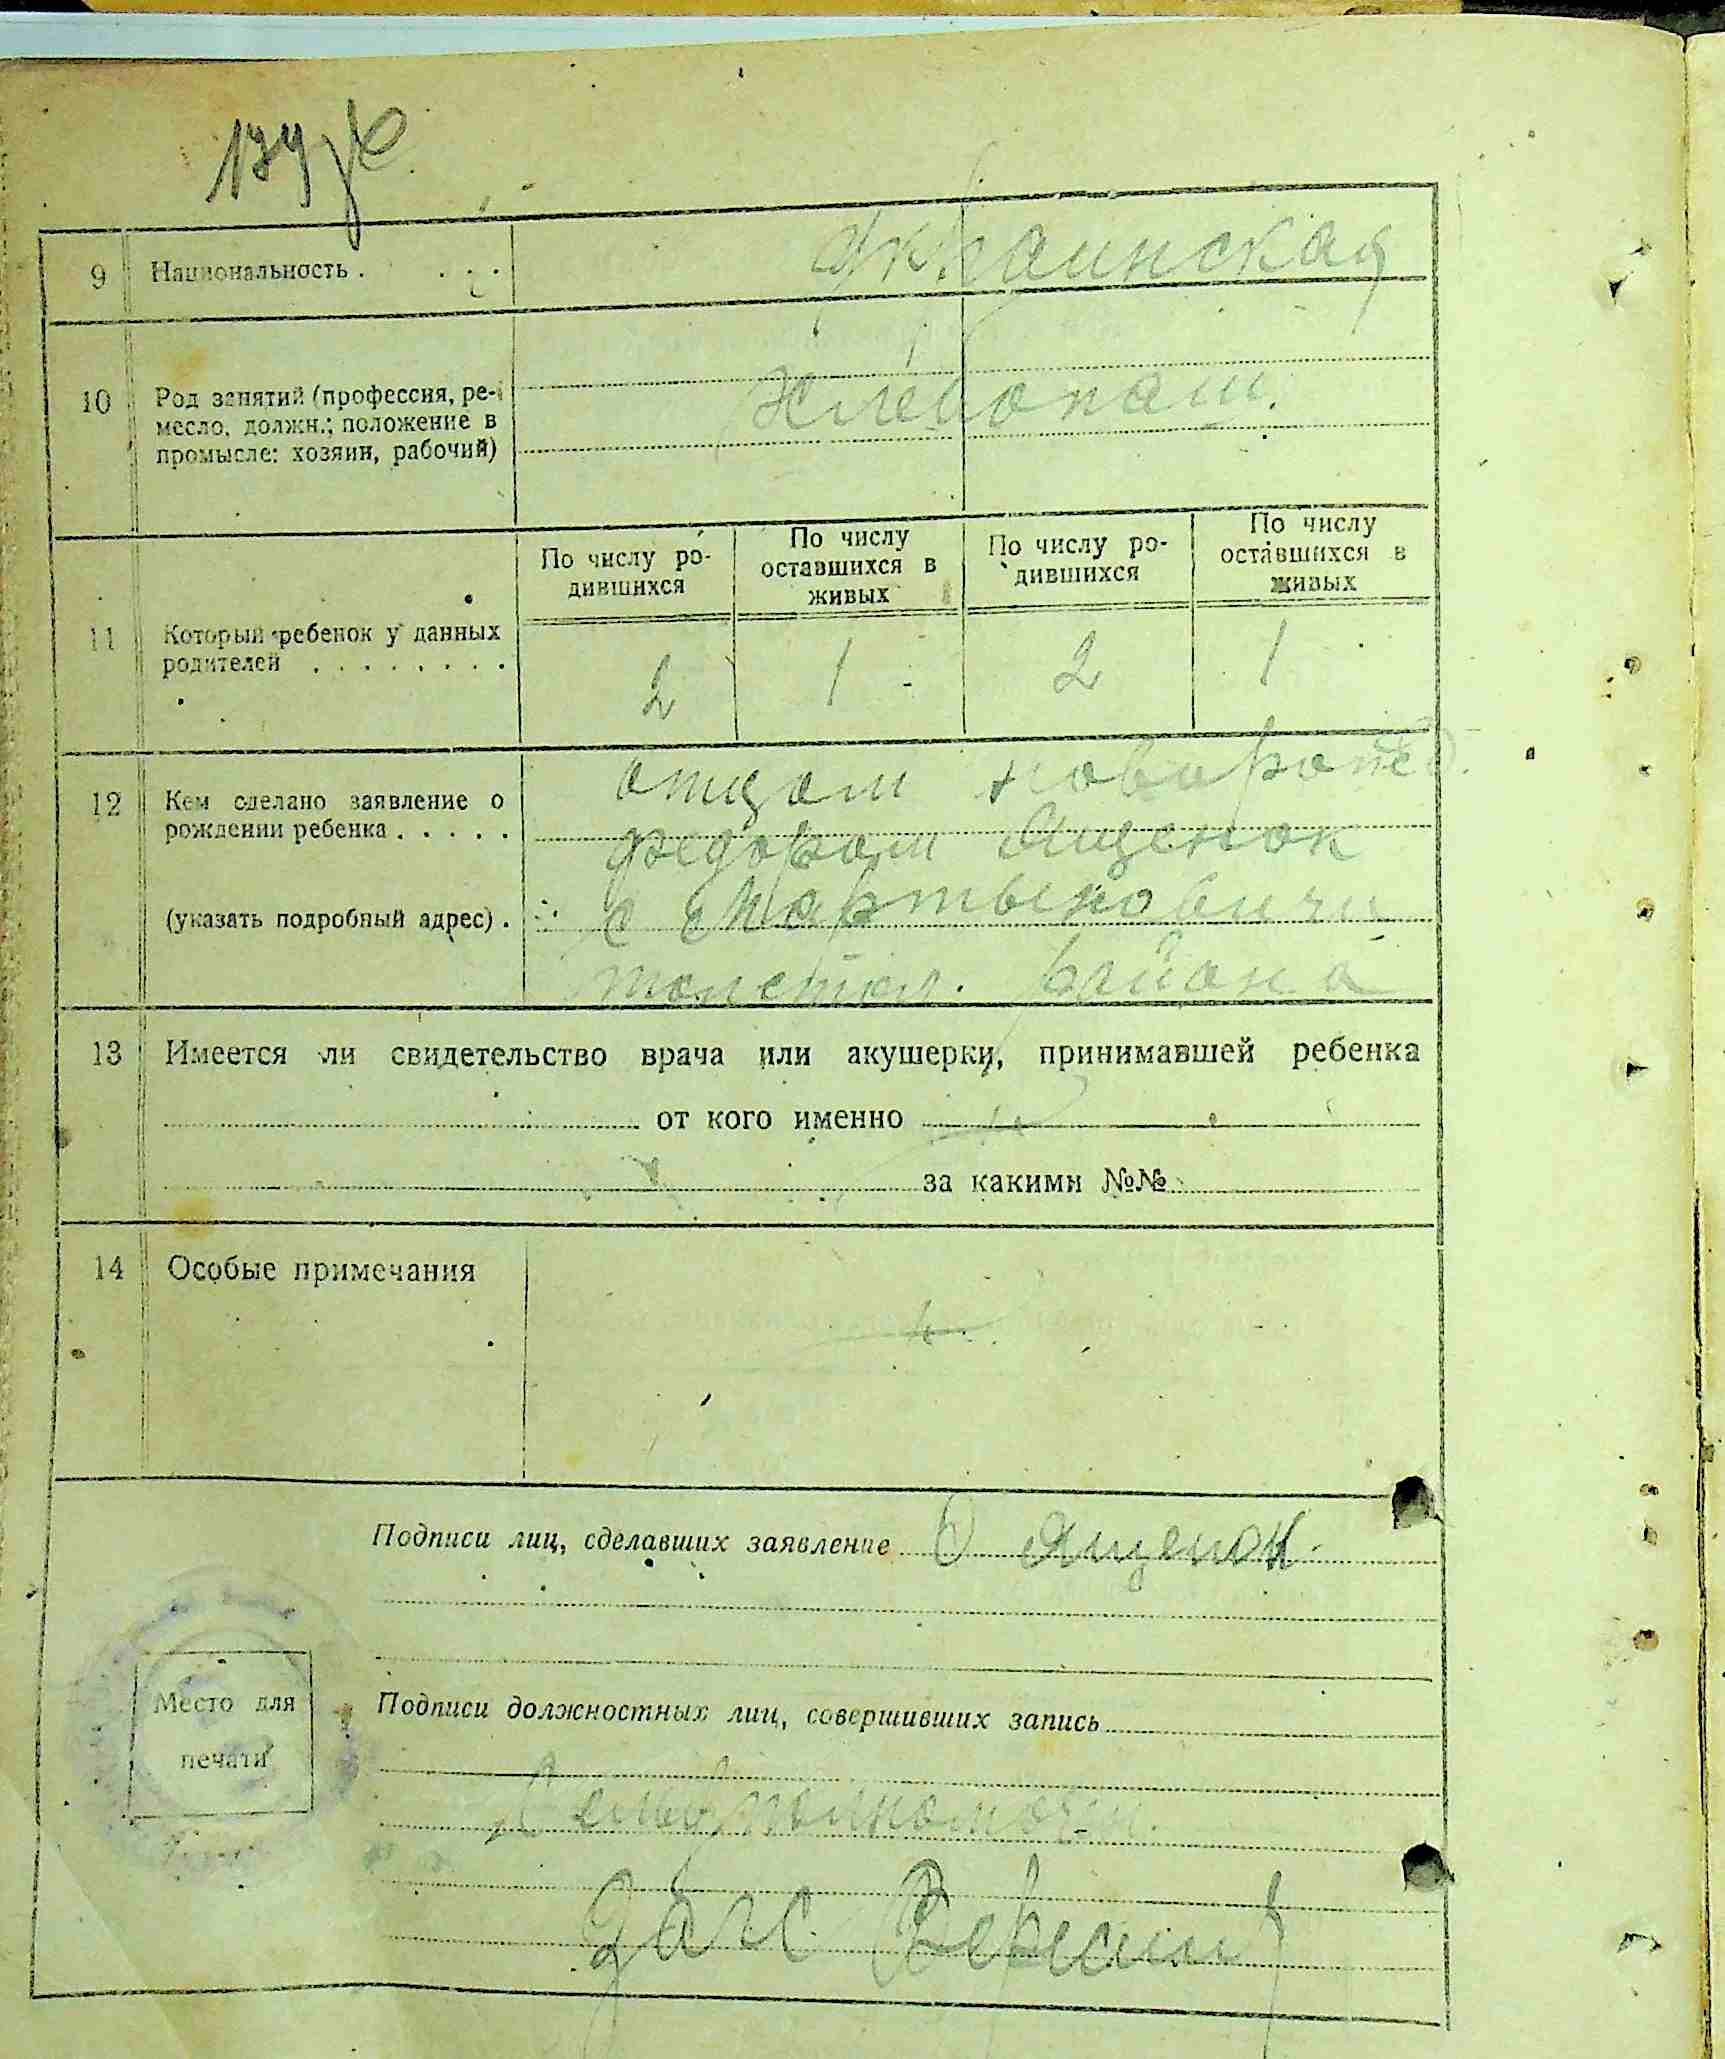 9 Национальность . . . . Украинская
10 Род занятий (профессия, ре-
месло, должн.; положение в
промысле: хозяин, рабочий)
Хлебопаш.
По числу ро-
дившихся
По числу
оставшихся в
живых
По числу ро-
дившихся
По числу
оставшихся в
живых
11 Который ребенок у данных
родителей . . . . . . . .
2 1 2 1
12 Кем сделано заявление о
рождении ребенка . . . . .
(указать подробный адрес) .
отцом
Федором Ященок
с Мартыновичи
района
13 Имеется ли свидетельство врача или акушерки, принимавшей ребенка
от кого именно
за какими №№
14 Особые примечания
Подписи лиц, сделавших заявление Ященок
Место для
печати
Подписи должностных лиц, совершивших запись